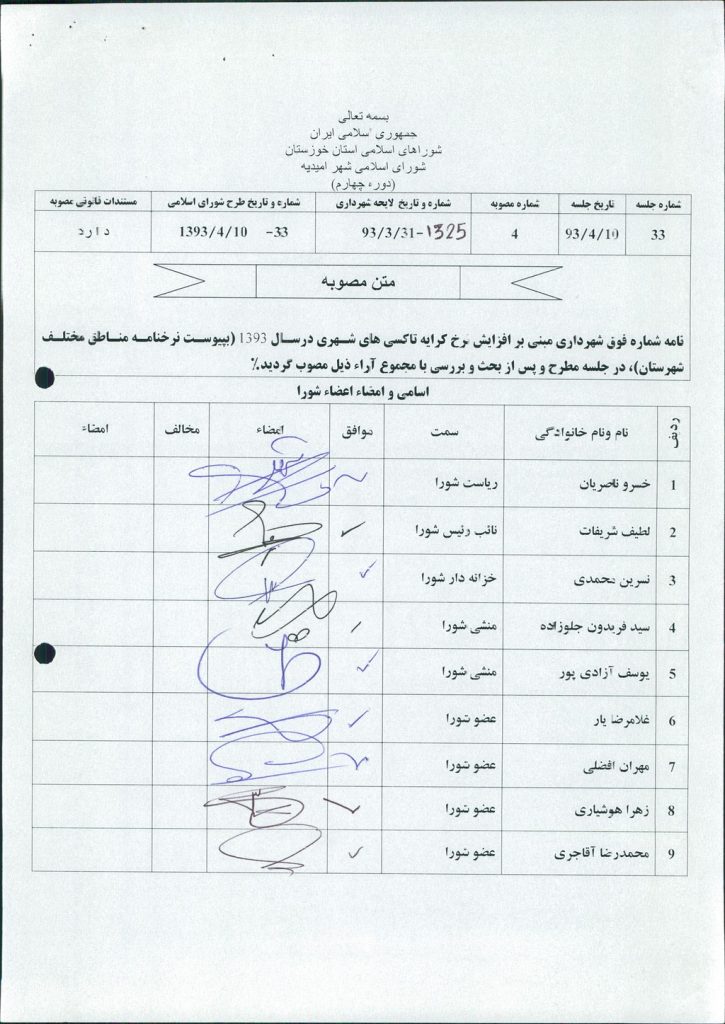 بسمه تعالی
جمهوری اسلامی ایران
شوراهای اسلامی استان خوزستان
شورای اسلامی شهر امیدیه
(دوره چهارم)
شماره جلسه تاریخ جلسه شماره مصوبه شماره و تاریخ لایحه شهرداری شماره و تاریخ طرح شورای اسلامی مستندات قانونی مصوبه
33 93/4/10 4 93/3/31-1325 1393/4/10 -33 دارد
متن مصوبه
نامه شماره فوق شهرداری مبنی بر افزایش نرخ کرایه تاکسی های شهری درسال 1393 (بپیوست نرخنامه مناطق مختلف
شهرستان)، در جلسه مطرح و پس از بحث و بررسی با مجموع آراء ذیل مصوب گردید.٪
اسامی و امضاء اعضاء شورا
ردیف نام ونام خانوادگی سمت موافق امضاء مخالف امضاء
1 خسرو ناصریان ریاست شورا
2 لطیف شریفات نائب رئیس شورا
3 نسرین محمدی خزانه دار شورا
4 سید فریدون جلوزاده منشی شورا
5 یوسف آزادی پور منشی شورا
6 غلامرضا یار عضو شورا
7 مهران افضلی عضو شورا
8 زهرا هوشیاری عضو شورا
9 محمدرضا آقاجری عضو شورا